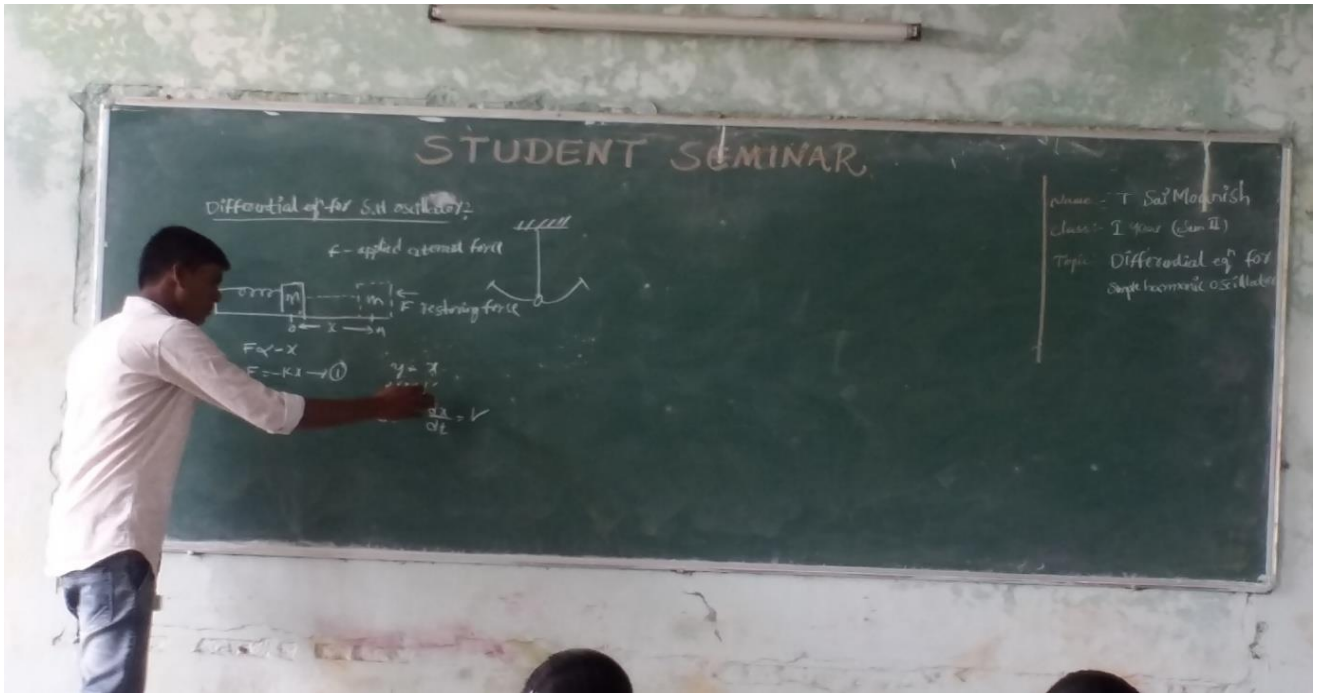 STUDENT SEMINAR
Differential eqⁿ for S.H oscillator:
f - applied external force
m
m
F restoring force
o
x
a
F ∝ - x
F = -Kx → ①
y = x
dx/dt = V
Name :- T Sai Moanish
Class :- I year (Sem II)
Topic :- Differential eqⁿ for
simple harmonic oscillator